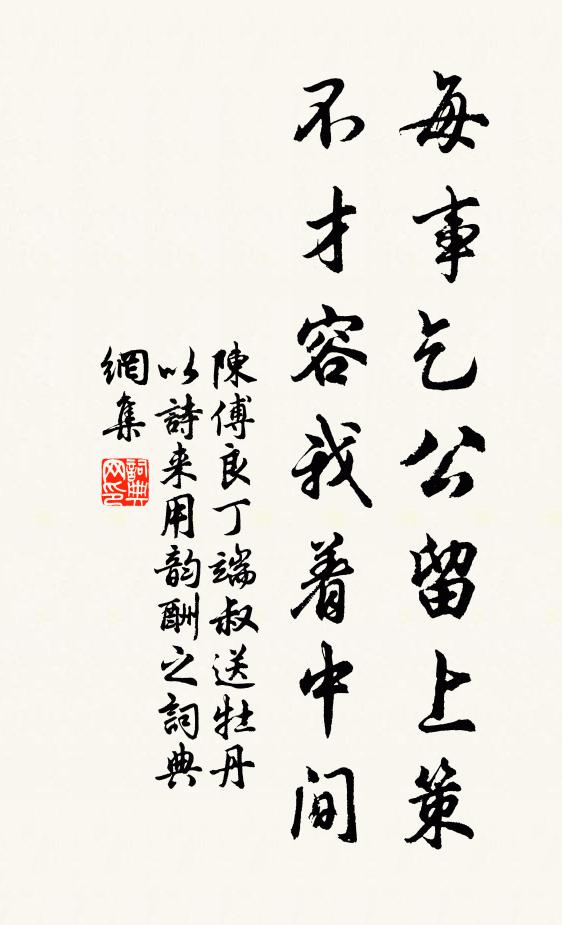 每事乞公留上策
不才容我着中间
陳傅良丁端叔送牡丹
以詩来用韵酬之詞典
網集
詞典网印